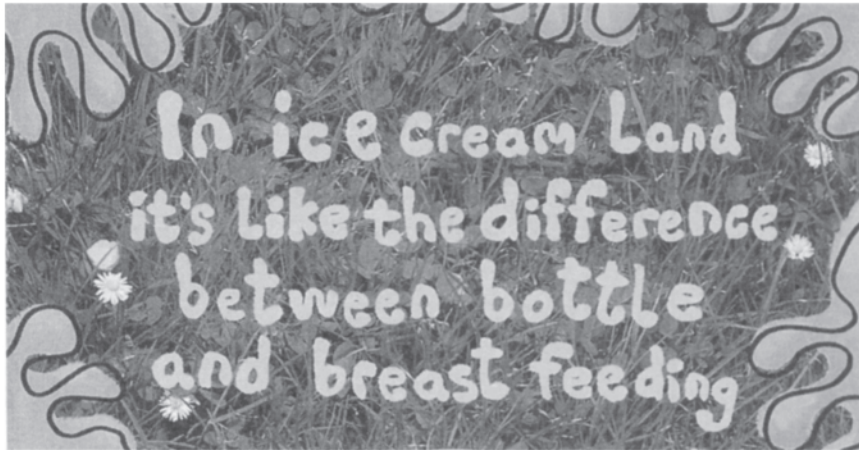 In ice cream Land
it's Like the difference
between bottle
and breast feeding